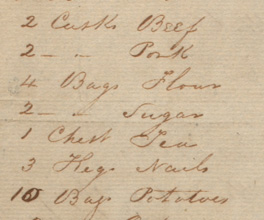 2 Casks Beef
2 - " Pork
4 Bags Flour
2 - " Sugar
1 Chest Tea
3 Kegs Nails
10 Bags Potatoes